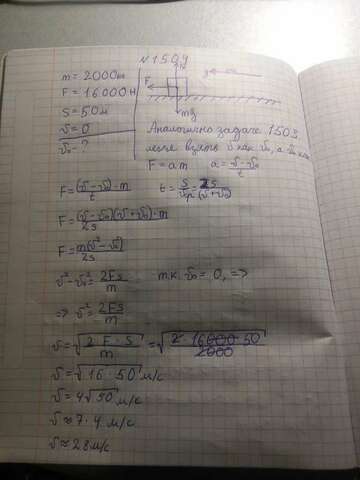 N 1504
m = 2000кг
F = 16000 Н
S = 50м
v = 0
v₀ - ?
N
F
mg
Аналогично задаче 1503
легче взять v как v₀, а v₀ как
F = am   a = (v - v₀)/t
F = (v - v₀)/t · m   t = S/vср = 2S/(v + v₀)
F = (v - v₀)(v + v₀) · m/2S
F = m(v² - v₀²)/2S
v² - v₀² = 2FS/m   т.к. v₀ = 0, =>
=> v² = 2FS/m
v = √(2 · F · S/m) = √(2 · 16000 · 50/2000)
v = √(16 · 50) м/с
v = 4√50 м/с
v ≈ 7 · 4 м/с
v ≈ 28 м/с